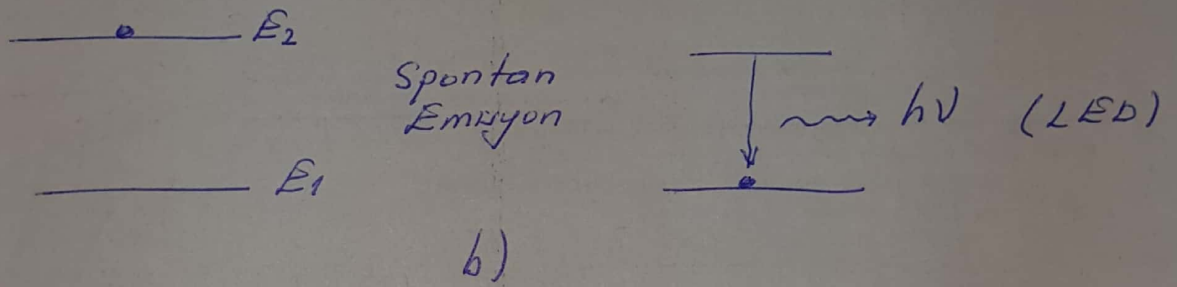 E₂
Spontan
Emisyon
hν (LED)
E₁
b)